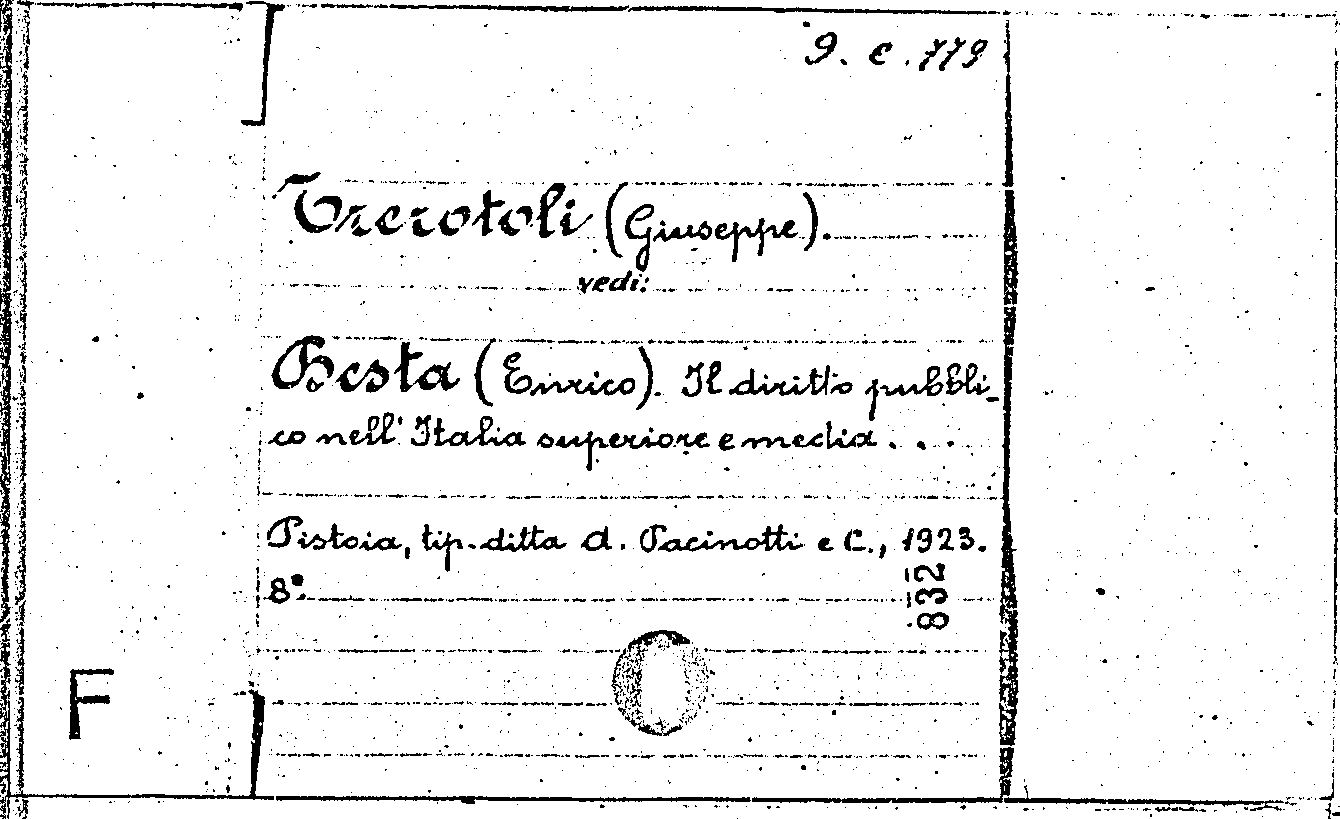 9. c. 779
Trerotoli (Giuseppe).
vedi:
Besta (Enrico). Il diritto pubbli_
co nell' Italia superiore e media . . .
Pistoia, tip. ditta A. Pacinotti e C., 1923.
8°.
832
F